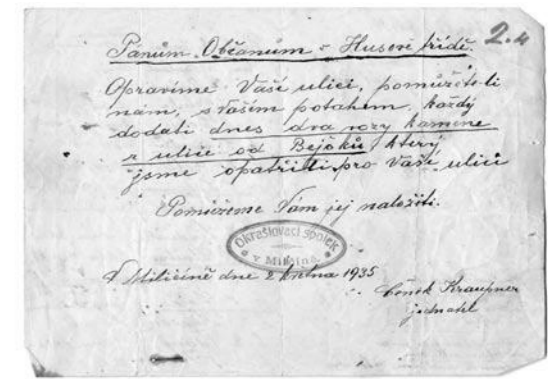 2.4
Panům Občanům v Husově třídě.
Opravíme Vaší ulici, pomůžete-li
nám, s Vaším potahem, každý
dodati dnes dva vozy kamene
z ulice od Bejčků, který
jsme opatřili pro Vaši ulici
Pomůžeme Vám jej naložiti.
Okrašlovací spolek
v Miličíně
V Miličíně dne 2 května 1935
Čeněk Kraupner
jednatel